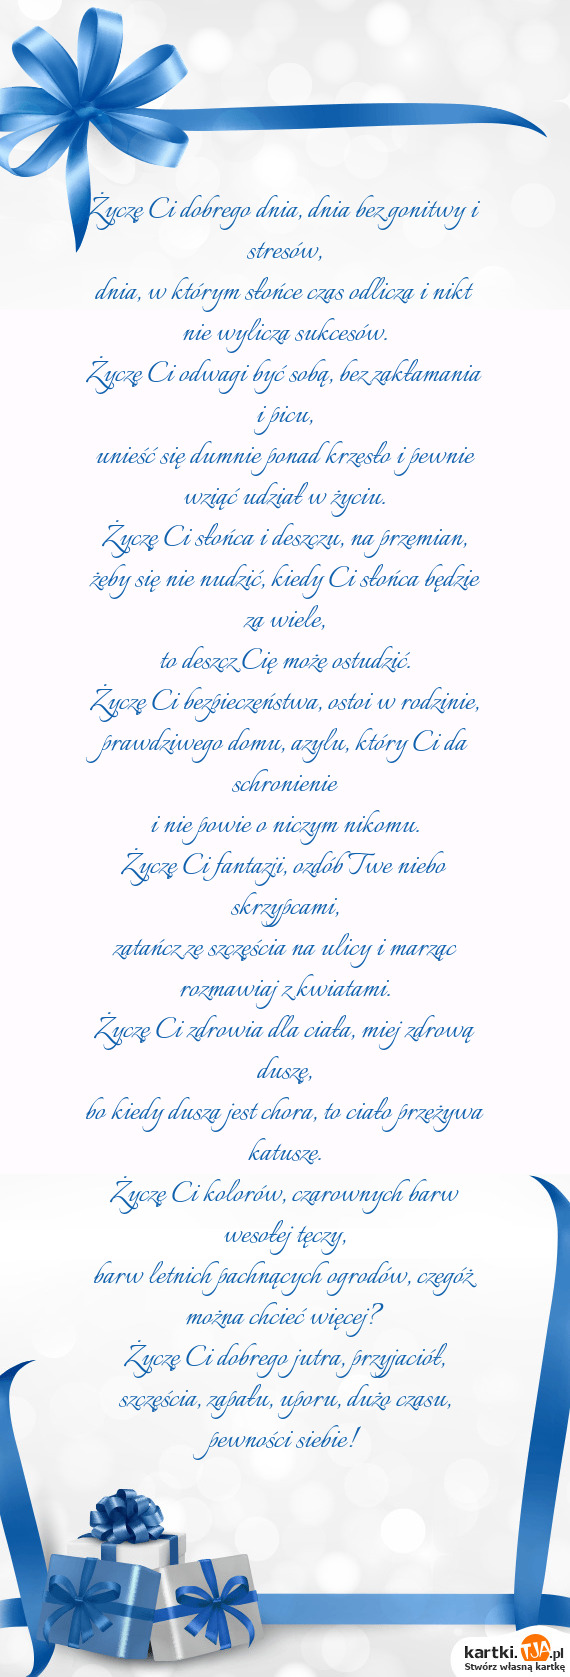 Życzę Ci dobrego dnia, dnia bez gonitwy i
stresów,
dnia, w którym słońce czas odlicza i nikt
nie wylicza sukcesów.
Życzę Ci odwagi być sobą, bez zakłamania
i picu,
unieść się dumnie ponad krzesło i pewnie
wziąć udział w życiu.
Życzę Ci słońca i deszczu, na przemian,
żeby się nie nudzić, kiedy Ci słońca będzie
za wiele,
to deszcz Cię może ostudzić.
Życzę Ci bezpieczeństwa, ostoi w rodzinie,
prawdziwego domu, azylu, który Ci da
schronienie
i nie powie o niczym nikomu.
Życzę Ci fantazji, ozdób Twe niebo
skrzypcami,
zatańcz ze szczęścia na ulicy i marząc
rozmawiaj z kwiatami.
Życzę Ci zdrowia dla ciała, miej zdrową
duszę,
bo kiedy dusza jest chora, to ciało przeżywa
katusze.
Życzę Ci kolorów, czarownych barw
wesołej tęczy,
barw letnich pachnących ogrodów, czegóż
można chcieć więcej?
Życzę Ci dobrego jutra, przyjaciół,
szczęścia, zapału, uporu, dużo czasu,
pewności siebie!
kartki.TJA.pl
Stwórz własną kartkę